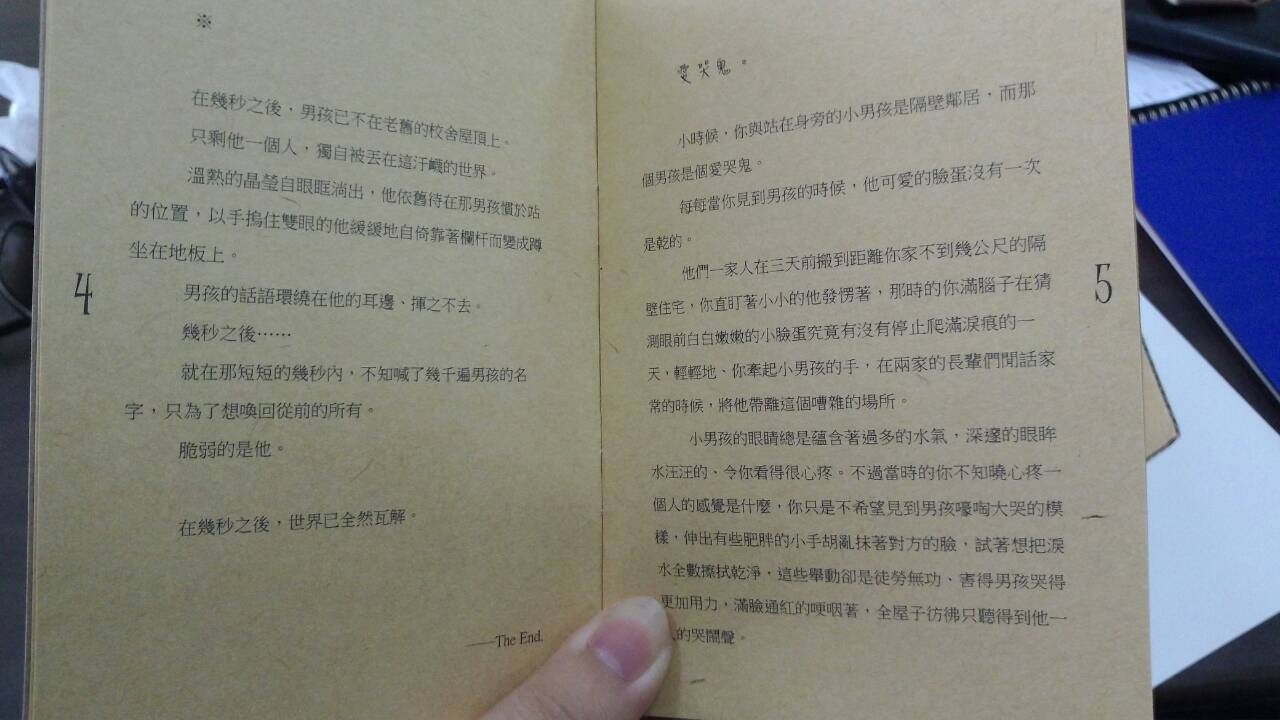 ※
在幾秒之後，男孩已不在老舊的校舍屋頂上。
只剩他一個人，獨自被丟在這汙衊的世界。
溫熱的晶瑩自眼眶淌出，他依舊待在那男孩慣於站
的位置，以手摀住雙眼的他緩緩地自倚靠著欄杆而變成蹲
坐在地板上。
男孩的話語環繞在他的耳邊、揮之不去。
幾秒之後……
就在那短短的幾秒內，不知喊了幾千遍男孩的名
字，只為了想喚回從前的所有。
脆弱的是他。
在幾秒之後，世界已全然瓦解。
——The End.
4
愛哭鬼。
小時候，你與站在身旁的小男孩是隔壁鄰居，而那
個男孩是個愛哭鬼。
每每當你見到男孩的時候，他可愛的臉蛋沒有一次
是乾的。
他們一家人在三天前搬到距離你家不到幾公尺的隔
壁住宅，你直盯著小小的他發愣著，那時的你滿腦子在猜
測眼前白白嫩嫩的小臉蛋究竟有沒有停止爬滿淚痕的一
天，輕輕地、你牽起小男孩的手，在兩家的長輩們閒話家
常的時候，將他帶離這個嘈雜的場所。
小男孩的眼睛總是蘊含著過多的水氣，深邃的眼眸
水汪汪的、令你看得很心疼。不過當時的你不知曉心疼一
個人的感覺是什麼，你只是不希望見到男孩嚎啕大哭的模
樣，伸出有些肥胖的小手胡亂抹著對方的臉，試著想把淚
水全數擦拭乾淨，這些舉動卻是徒勞無功、害得男孩哭得
更加用力，滿臉通紅的哽咽著，全屋子彷彿只聽得到他一
的哭鬧聲。
5